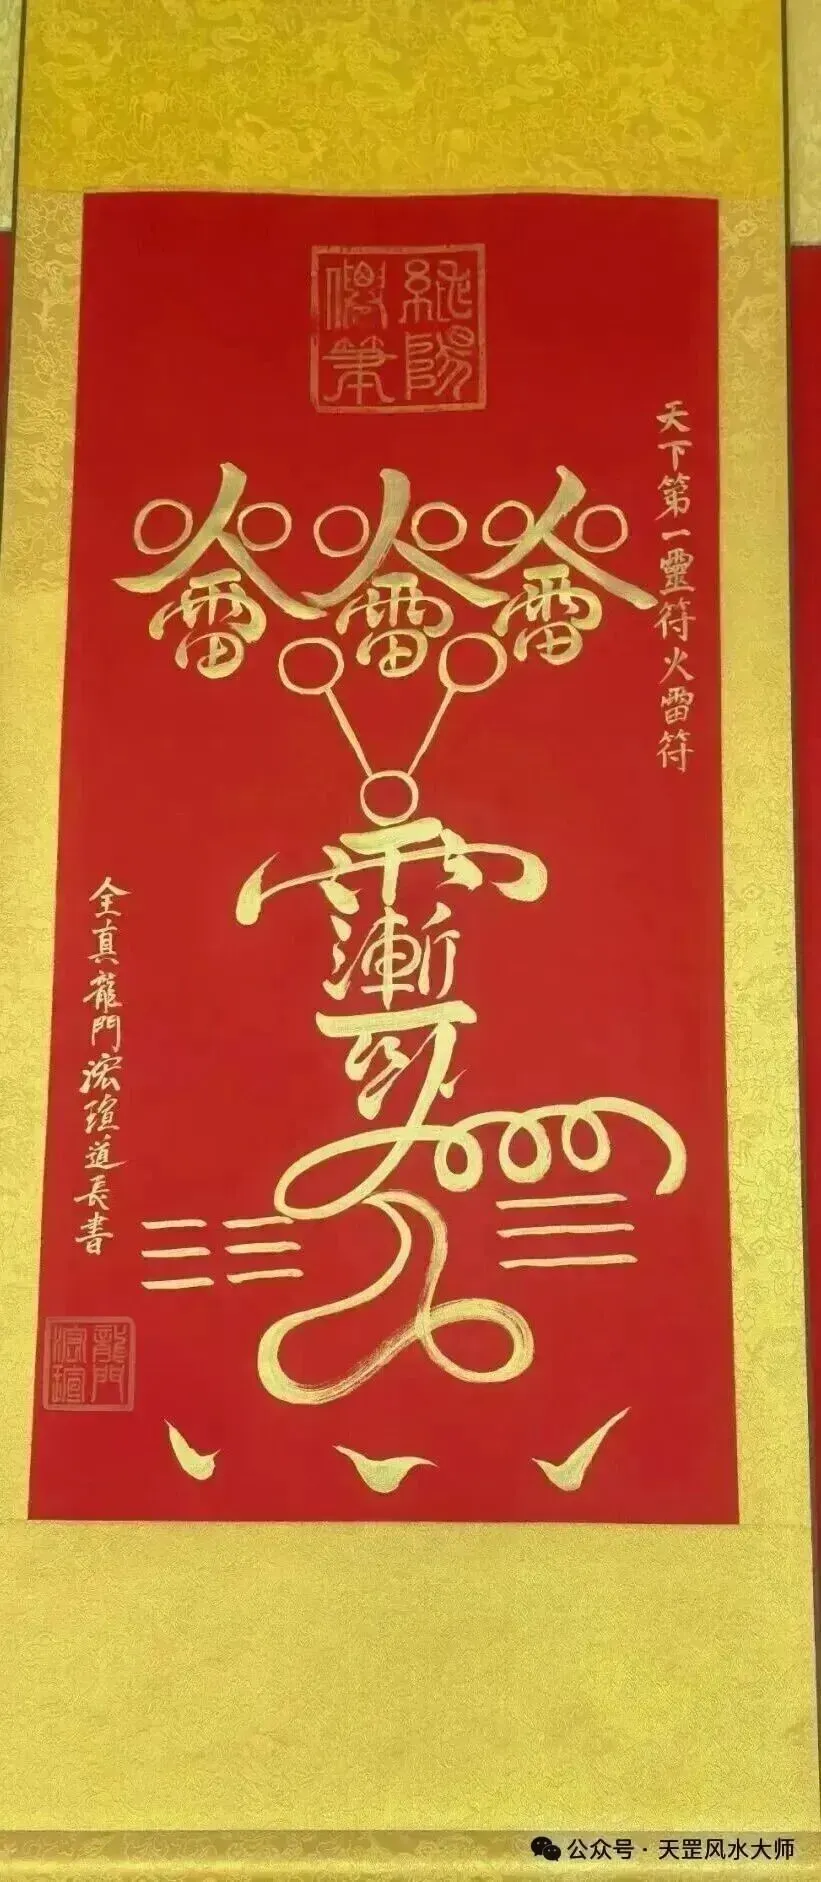 純陽
僊筆
天下第一靈符火雷符
火 火 火
雷 雷 雷
全真龍門浤瑄道長書
龍門
浤瑄
公众号 · 天罡风水大师